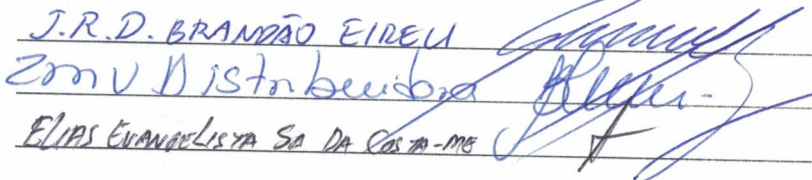 J.R.D. BRANDÃO EIRELI
ZmV Distribuidora
ELIAS EVANGELISTA SA DA COSTA-ME